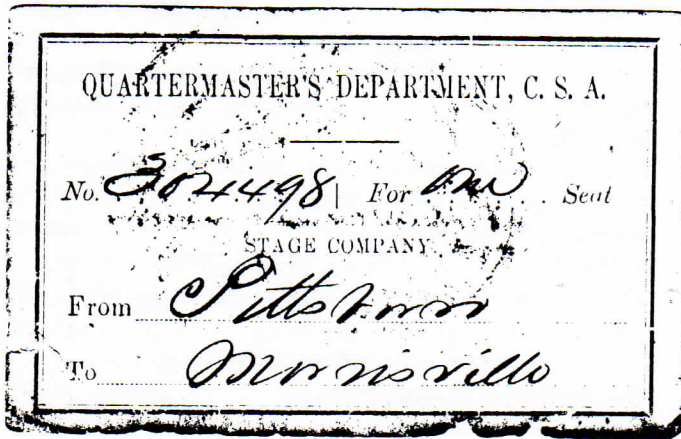 QUARTERMASTER'S DEPARTMENT, C. S. A.
No. 304498 For one Seat
STAGE COMPANY
From Pittsboro
To Morrisville